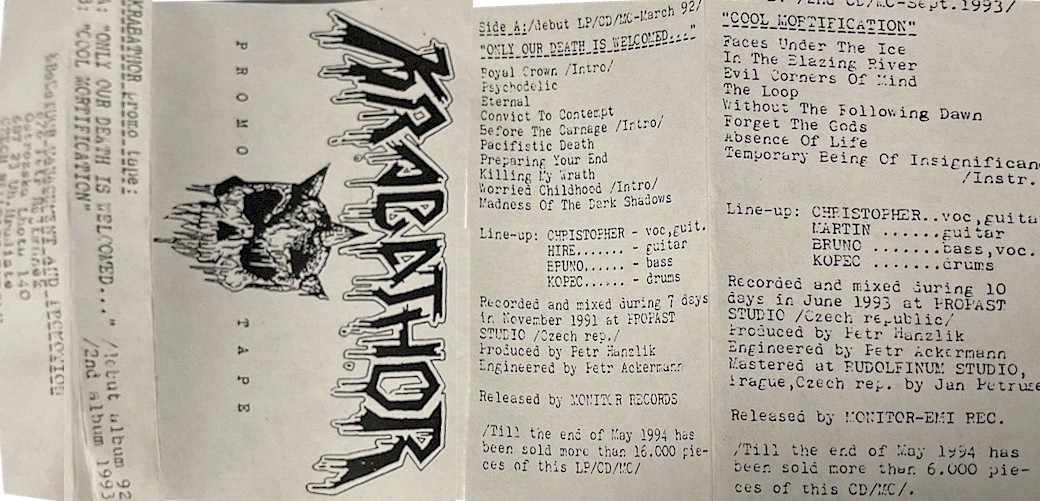 KRABATHOR promo tape:
A: "ONLY OUR DEATH IS WELCOMED..." /debut album 92
B: "COOL MORTIFICATION" /2nd album 1993
MANAGEMENT AND PROMOTION
140
KRABATHOR
PROMO TAPE
Side A:/debut LP/CD/MC-March 92/
"ONLY OUR DEATH IS WELCOMED...."
Royal Crown /Intro/
Psychodelic
Eternal
Convict To Contempt
Before The Carnage /Intro/
Pacifistic Death
Preparing Your End
Killing My Wrath
Worried Childhood /Intro/
Madness Of The Dark Shadows
Line-up: CHRISTOPHER - voc,guit.
HIRE....... - guitar
BRUNO...... - bass
KOPEC...... - drums
Recorded and mixed during 7 days
in November 1991 at PROPAST
STUDIO /Czech rep./
Produced by Petr Hanzlik
Engineered by Petr Ackermann
Released by MONITOR RECORDS
/Till the end of May 1994 has
been sold more than 16.000 pie-
ces of this LP/CD/MC/
/2nd CD/MC-Sept.1993/
"COOL MORTIFICATION"
Faces Under The Ice
In The Blazing River
Evil Corners Of Mind
The Loop
Without The Following Dawn
Forget The Gods
Absence Of Life
Temporary Being Of Insignifican
/Instr.
Line-up: CHRISTOPHER..voc,guita
MARTIN ......guitar
BRUNO .......bass,voc.
KOPEC .......drums
Recorded and mixed during 10
days in June 1993 at PROPAST
STUDIO /Czech republic/
Produced by Petr Hanzlik
Engineered by Petr Ackermann
Mastered at RUDOLFINUM STUDIO,
Prague,Czech rep. by Jan Petruse
Released by MONITOR-EMI REC.
/Till the end of May 1994 has
been sold more than 6.000 pie-
ces of this CD/MC/.